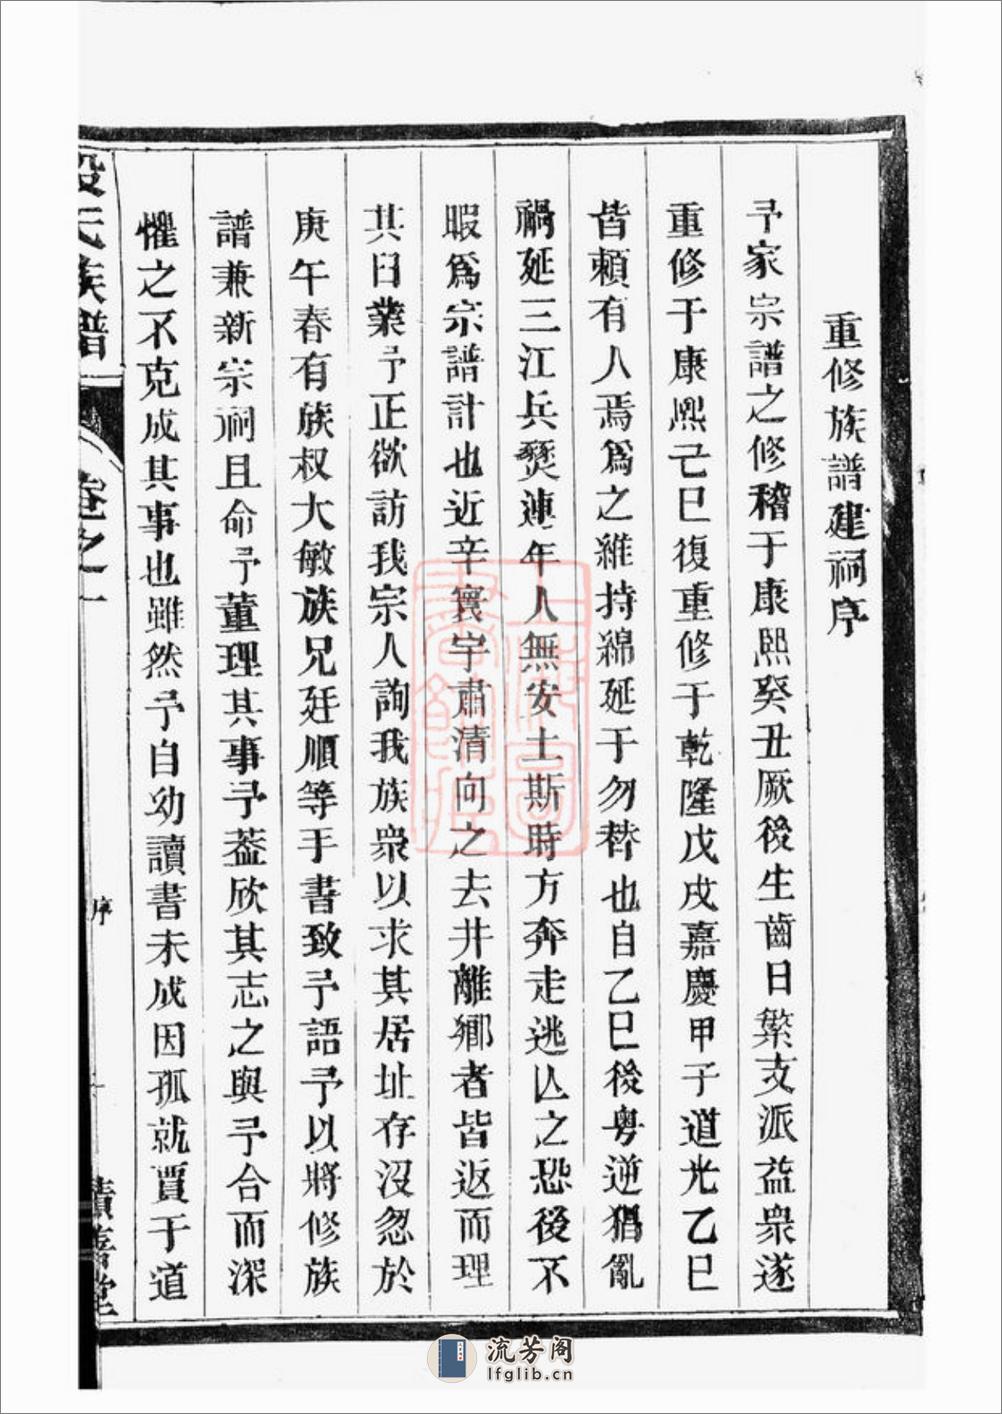 重修族譜建祠序
予家宗譜之修稽于康熙癸丑厥後生齒日繁支派益衆遂
重修于康熙己巳復重修于乾隆戊戌嘉慶甲子道光乙巳
皆賴有人焉爲之維持綿延于勿替也自乙巳後粵逆猖亂
禍延三江兵燹連年人無安土斯時方奔走逃亾之恐後不
暇爲宗譜計也近幸寰宇肅清向之去井離鄉者皆返而理
其日業予正欲訪我宗人詢我族衆以求其居址存沒忽於
庚午春有族叔大敏族兄廷順等手書致予語予以將修族
譜兼新宗祠且命予董理其事予葢欣其志之與予合而深
懼之不克成其事也雖然予自幼讀書未成因孤就賈于道
段氏族譜
卷之一
序
一
積善堂
流芳阁
lfglib.cn